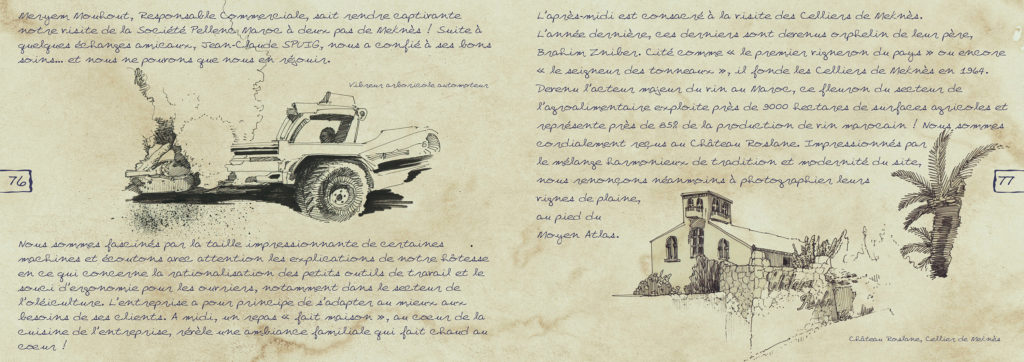 Meryem Mouhout, Responsable Commerciale, sait rendre captivante
notre visite de la Société Pellenc Maroc à deux pas de Meknès ! Suite à
quelques échanges amicaux, Jean-Claude SPUIG, nous a confié à ses bons
soins... et nous ne pouvons que nous en réjouir.
Vibreur arboricole automoteur
76
Nous sommes fascinés par la taille impressionnante de certaines
machines et écoutons avec attention les explications de notre hôtesse
en ce qui concerne la rationalisation des petits outils de travail et le
souci d'ergonomie pour les ouvriers, notamment dans le secteur de
l'oléiculture. L'entreprise a pour principe de s'adapter au mieux aux
besoins de ses clients. A midi, un repas « fait maison », au coeur de la
cuisine de l'entreprise, révèle une ambiance familiale qui fait chaud au
coeur !
L'après-midi est consacré à la visite des Celliers de Meknès.
L'année dernière, ces derniers sont devenus orphelin de leur père,
Brahim Zniber. Cité comme « le premier vigneron du pays » ou encore
« le seigneur des tonneaux », il fonde les Celliers de Meknès en 1964.
Devenu l'acteur majeur du vin au Maroc, ce fleuron du secteur de
l'agroalimentaire exploite près de 9000 hectares de surfaces agricoles et
représente près de 85% de la production de vin marocain ! Nous sommes
cordialement reçus au Château Roslane. Impressionnés par
le mélange harmonieux de tradition et modernité du site,
nous renonçons néanmoins à photographier leurs
vignes de plaine,
au pied du
Moyen Atlas.
77
Château Roslane, Cellier de Meknès